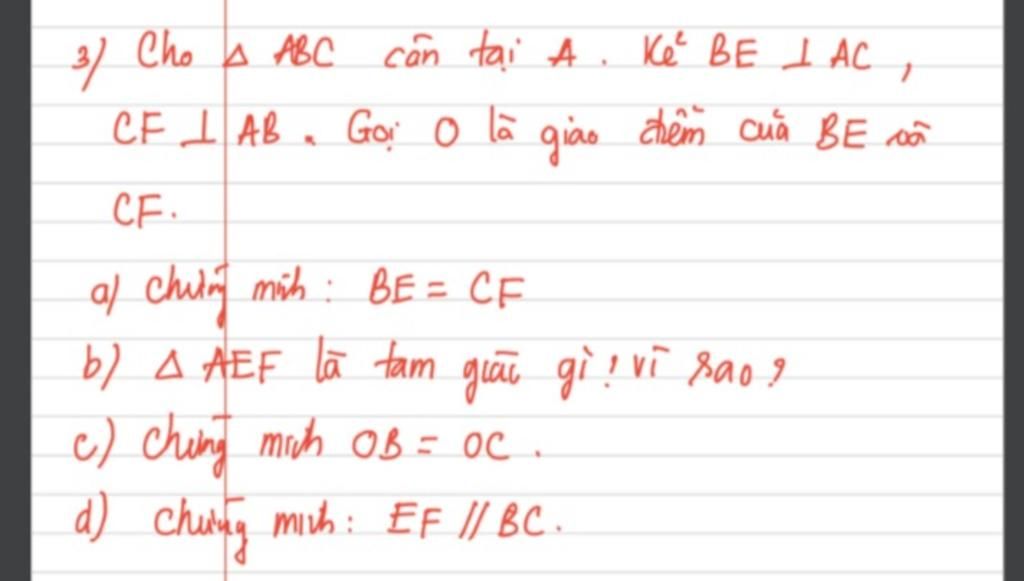 3) Cho Δ ABC cân tại A. Kẻ BE ⊥ AC,
CF ⊥ AB. Gọi O là giao điểm của BE và
CF.
a) Chứng minh: BE = CF
b) Δ AEF là tam giác gì? Vì sao?
c) Chứng minh OB = OC.
d) Chứng minh: EF // BC.